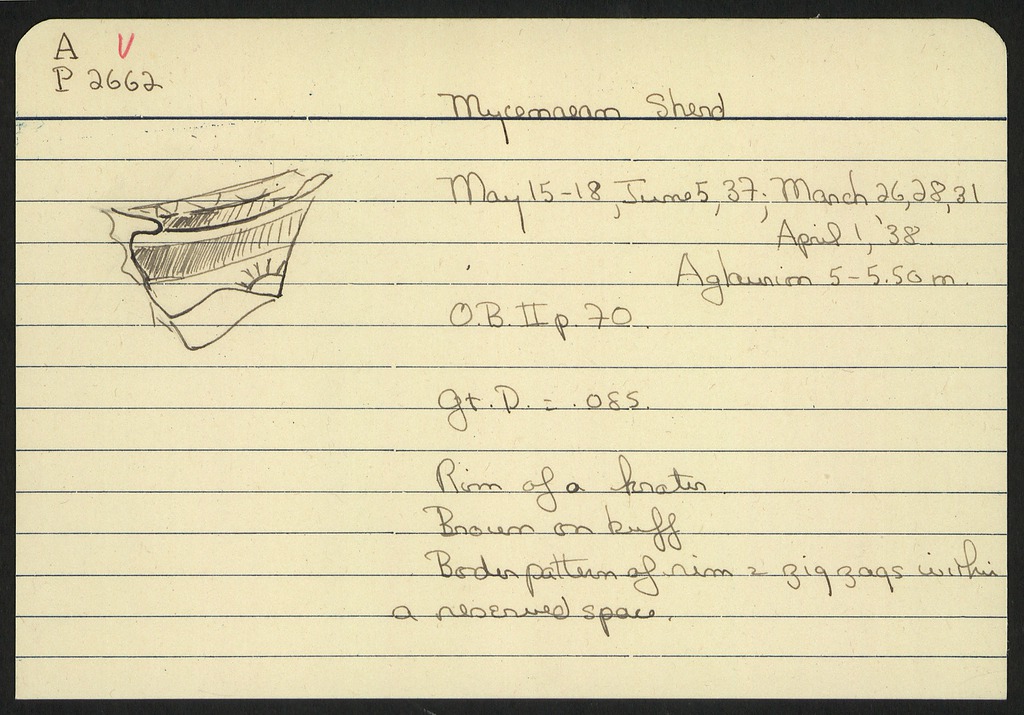 A V
P 2662
Mycenaean Sherd
May 15-18, June 5, 37; March 26, 28, 31
April 1, '38
Aglaurion 5-5.50 m.
O.B. II p. 70.
Gt. D. = .085.
Rim of a krater
Brown on buff
Border pattern of rim = zigzags within
a reserved space.